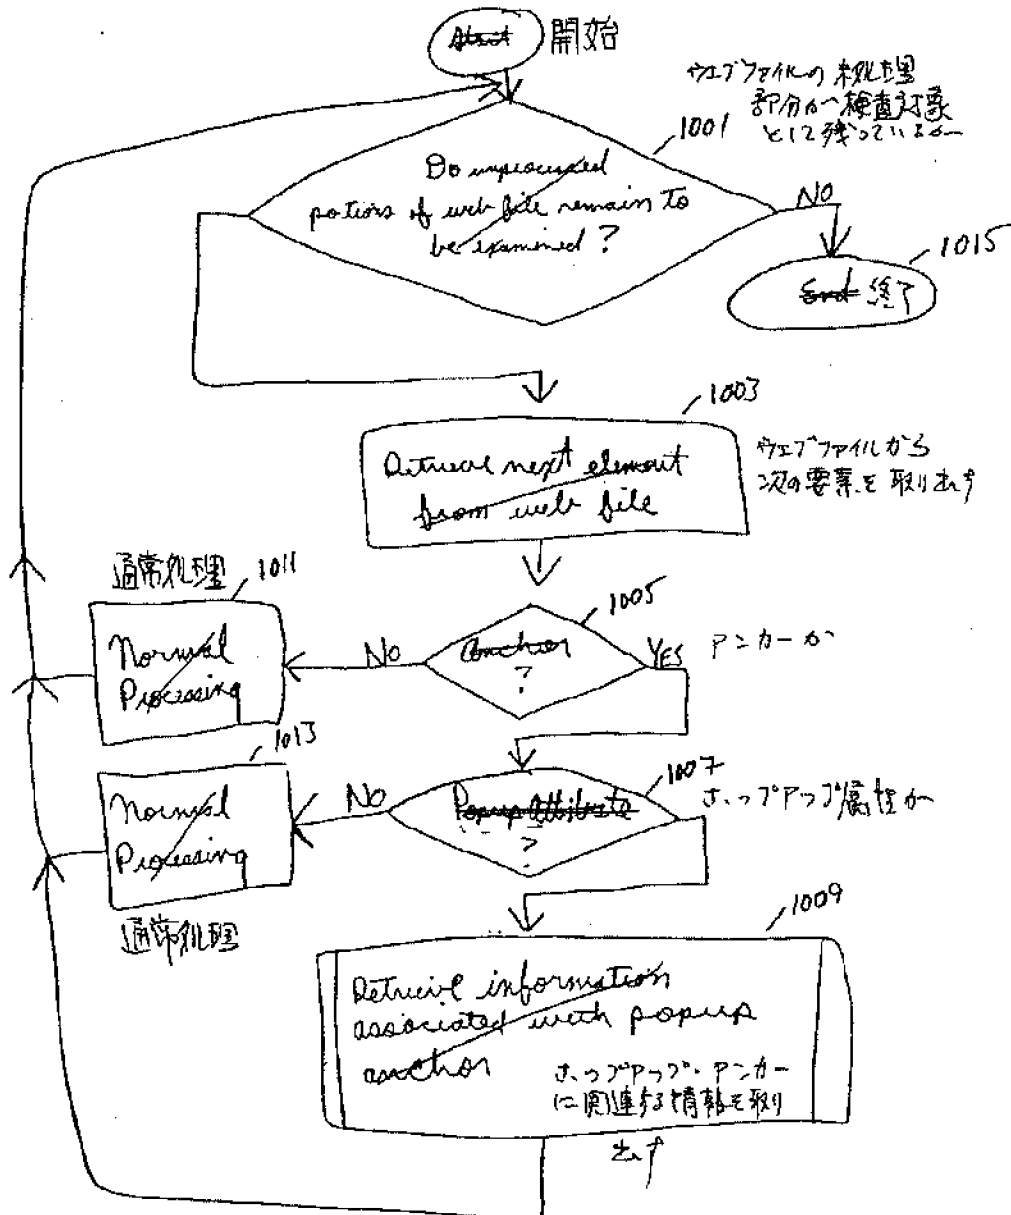 Start 開始
ウエブファイルの未処理
部分が検査対象
として残っているか
1001
Do unprocessed
potions of web file remain to
be examined?
NO
1015
End 終了
1003
Retrieve next element
from web file
ウェブファイルから
次の要素を取り出す
通常処理
1011
Normal
Processing
No
1005
Anchor
?
YES
アンカーか
1013
Normal
Processing
通常処理
No
1007
Popup Attribute
?
ポップアップ属性か
1009
Retrieve information
associated with popup
anchor
ポップアップ・アンカー
に関連する情報を取り
出す